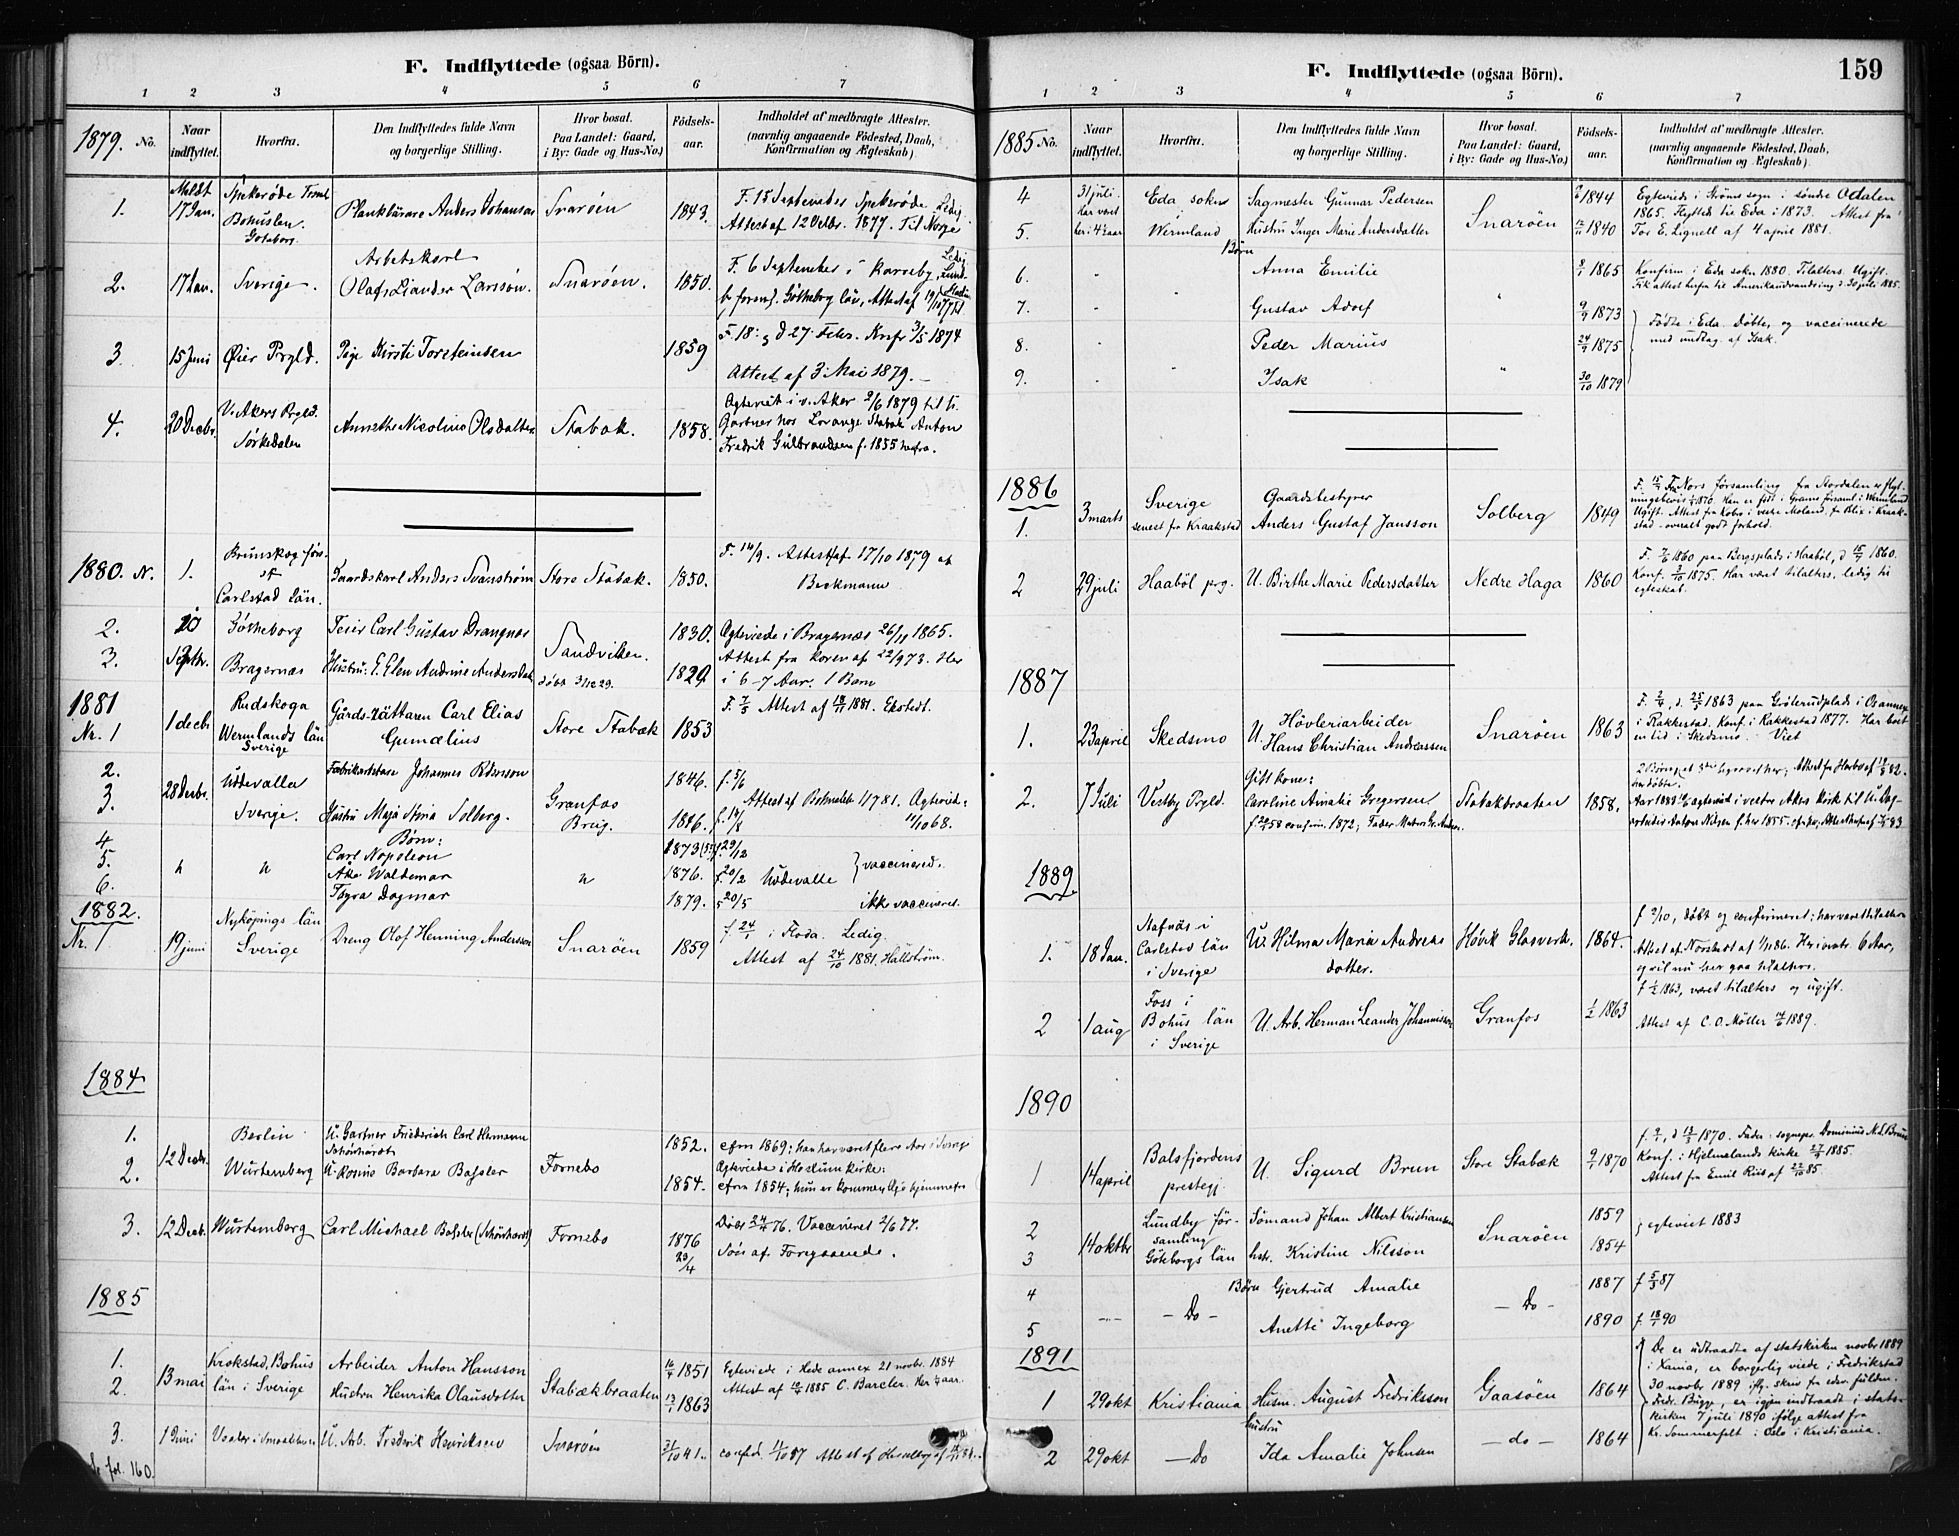 F. Indflyttede (ogsaa Börn).
1 2 3 4 5 6 7
1879. No.
Naar indflyttet.
Hvorfra.
Den Indflyttedes fulde Navn
og borgerlige Stilling.
Hvor bosat.
Paa Landet: Gaard,
i By: Gade og Hus-No.)
Fødsels-
aar.
Indholdet af medbragte Attester.
(navnlig angaaende Fødested, Daab,
Konfirmation og Ægteskab)
1. Meldt 17 Jan. Spekeröde
Bohuslen. Göteborg. Anders Johanson Snarøen 1843. F. 15 September Spekeröde Ledig.
Attest af 12 Octbr. 1877. Til Norge
Arbetskarl
2. 17 Jan. Sverige. Olaf Leander Larsson. Snarøen. 1850. F. 6 September i
Götheborg län, Attest af
3. 15 Juni Øier Prgld. Pige Kirsti Torsteinsen 1859 F. 18: g d 27: Febr. Konf 3/5 1874
Attest af 3. Mai 1879.
4. 20 Decbr. V. Akers Prgld.
Sørkedalen Annethe Nicoline Olsdatter Stabæk. 1858. Ægteviet i v. Aker 2/6 1879 til U.
Gartner hos Stabæk Anton
Fredrik Gulbrandsen f. 1855 herfra.
1880. N. 1. Brunskog
Carlstad Län. Gaardskarl Anders Svanström Store Stabæk. 1850. F. 14/9. Attest af 17/10 1879 at
Beckmann
2. 20 Götheborg Carl Gustav Drangnäs Sandviken. 1830. Ægteviede i Bragernæs 26/11 1865.
3. Septbr. Bragernæs Hustru: E. Elen Andrine Andersdatt. døbt 3/12 29. 1829 Attest fra af 22/9 73. Her
i 6-7 Aar. 1 Barn
1881
Nr. 1 1 decb. Rudskoga
Wermlands län
Sverige Gårds-rättaren Carl Elias
Gumælius Store Stabæk 1853 F. 7/5 Attest af 18/11 1881. Ekstedt.
2. 28 Decbr. Uddevalla Johannes 1846. f. 5/6
3. Sverige. Hustru Maja Stina Solberg. Granfos
Brug. 1846. f. 14/8 Attest af 1/7 81. Ægteviet
11/10 68.
Børn:
4. Carl Napoleon 1873 f. 29/12
5. " " Åke Waldemar " 1876. f. 20/2 Uddevalle } vaccinered.
6. Thyra Dagmar 1879. f. 20/5 ikke vaccineret.
1882.
Nr. 1 19 juni Nyköpings län
Sverige Dreng Olof Henning Andersson Snarøen 1859 f. 24/1 i Floda. Ledig.
Attest af 24/10 1881. Hallström.
1884
1. 12 Decbr. Berlin U. Gartner Friederich Carl Hermann
Schönhardt Fornebo 1852. cfrm 1869; han har været flere Aar i Sverige
2. Wurtemberg U. Barbara Bassler 1854. Ægteviede i Haslum kirke:
cfrm 1854; hun er kommen hjemmefra
3. 12 Decb. Wurtemberg Carl Michael Bassler (Schönhardt) Fornebo 1876
29/4 Døbt 24/4 76. Vaccineret 2/6 77.
Søn af Foregaaende.
1885
1. 13 mai Krokstad, Bohus Arbeider Anton Hansson Stabækbraaten 16/4 1851 Egteviede i Hede annex 21 novbr. 1884
2. län i Sverige Hustru Henrika Olausdotter 13/1 1863 Attest af 1885 C. Barcler. Her ½ aar.
3. 1 Juni U. Arb. Frederik Henriksen Snarøen 31/10 41. Attest af
fol. 160.
F. Indflyttede (ogsaa Börn).
159
1 2 3 4 5 6 7
1885 No.
Naar indflyttet.
Hvorfra.
Den Indflyttedes fulde Navn
og borgerlige Stilling.
Hvor bosat.
Paa Landet: Gaard,
i By: Gade og Hus-No.)
Fødsels-
aar.
Indholdet af medbragte Attester.
(navnlig angaaende Fødested, Daab,
Konfirmation og Ægteskab)
4 31 juli. Eda sokn Sagmester Gunnar Pedersen Snarøen 1844 Egteviede i Strøms sogn i søndre Odalen
5. Har været her i 4½ aar Wermland Hustru Inger Marie Andersdatter 1840 1865. Flyttede til Eda i 1873. Attest fra
For E. Lignell af 4 april 1881.
Børn
6. Anna Emilie 1865 Konfirm i Eda sokn 1880. Tilalters. Ugift.
Fik attest herfra til Amerikaudvandring d. 30 juli 1885.
7. Gustav Adolf 9/9 1873 Fødte i Eda. Døbte og vaccinerede
8. Peder Marius 24/9 1875 med undtag. af Isak.
9. Isak 30/10 1879
1886
1. 3 marts Sverige
senest fr Kraakstad Gaardsbestyrer
Anders Gustaf Jansson Solberg 1849 F. Nors församling fra Stordalen
ningsbevis 1870. Han er født i Grums församl. i Wermland
Ugift. Attest fra fr Blix i Kraak-
stad - overalt godt forhold.
2 29 juli Haabøl prg. U. Birthe Marie Pedersdatter Nedre Haga 1860 F. 1860 paa Bergsplads i Haabøl, d 15/7 1860.
Konf. 3/10 1875. Har været tilalters, ledig til
egteskab.
1887
1. 23 april Skedsmo U. Høvleriarbeider
Hans Christian Andreassen Snarøen 1863 F. 2/4, d. 25/5 1863 paa i Os annex
i Rakkestad. Konf. i Rakkestad 1877. Har boet
en tid i Skedsmo. Viet
2. 7 Juli Vestby Prgld. Gift kone:
Caroline Amalie Gregersen
confirm. 1872; Fader Stabækbraaten 1858. ægteviet i vestre Akers Kirk til U. Dag-
arbeider Anton Nilsen f. her 1855.
1889
1. 18 Jan. Stafnäs i
Carlstad län
i Sverige U. Hilma Maria Andreas
dotter. Høvik Glasverk. 1864. f 2/10, døbt og confirmeret; har været tilalters
6 Aar,
og vil nu her gaa tilalters.
2 1 aug Foss i
Bohus län
i Sverige U. Arb. Herman Leander Johannisson Granfos 1/2 1863 f 1/2 1863, været tilalters og ugift.
Attest af C. O. Möller 1889.
1890
1 14 april Balsfjordens
prestegj. U. Sigurd Brun Store Stabæk 9/1 1870 Fader: sognepr. Dominicus N. S. Brun
Konf. i Hjelmelands kirke 27/9 1885.
Attest fra Emil Riis af 22/10 85.
2 14 oktbr Lundby för-
samling Sømand Johan Albert Kristiansen Snarøen 1859 } egteviet 1883
3 Göteborgs län hstr. Kristine Nilsson 1854
4 — Do — Børn Gjertrud Amalie — Do — 1887 f 5/3 87
5 Anette Ingeborg 1890 f. 18/1 90
1891
1 29 okt Kristiania Husm. August Fredriksson Gaasøen 1864 De er udtraadte af statskirken novbr 1889
i Xania, er borgerlig viede i Fredrikstad
30 novbr 1889 iflg. skriv fr edsv. fuldm.
Fredr. Bugge, er igjen indtraadt i stats-
kirken 7 juli 1890 ifølge attest fra
Kr. Sommerfelt i Oslo i Kristiania.
Hustru
2 29 okt — Do Ida Amalie Johnsen — do — 1864